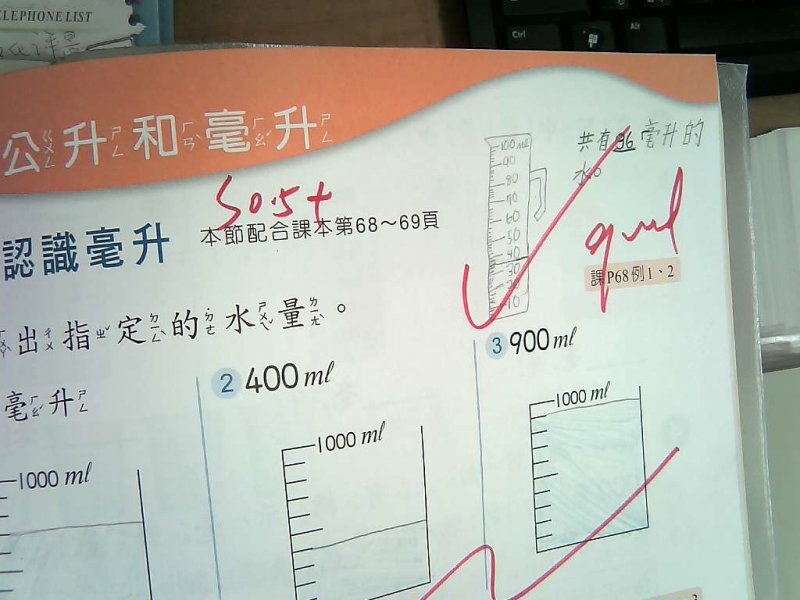 TELEPHONE LIST
Ctrl
Alt
公升和毫升
ㄍㄨㄥ ㄕㄥ ㄏㄢˋ ㄏㄠˊ ㄕㄥ
100 ml
90
80
70
60
50
40
30
20
10
共有36毫升的
水。
認識毫升
本節配合課本第68～69頁
課P68例1、2
出指定的水量。
毫升
2 400 ml
3 900 ml
1000 ml
1000 ml
1000 ml